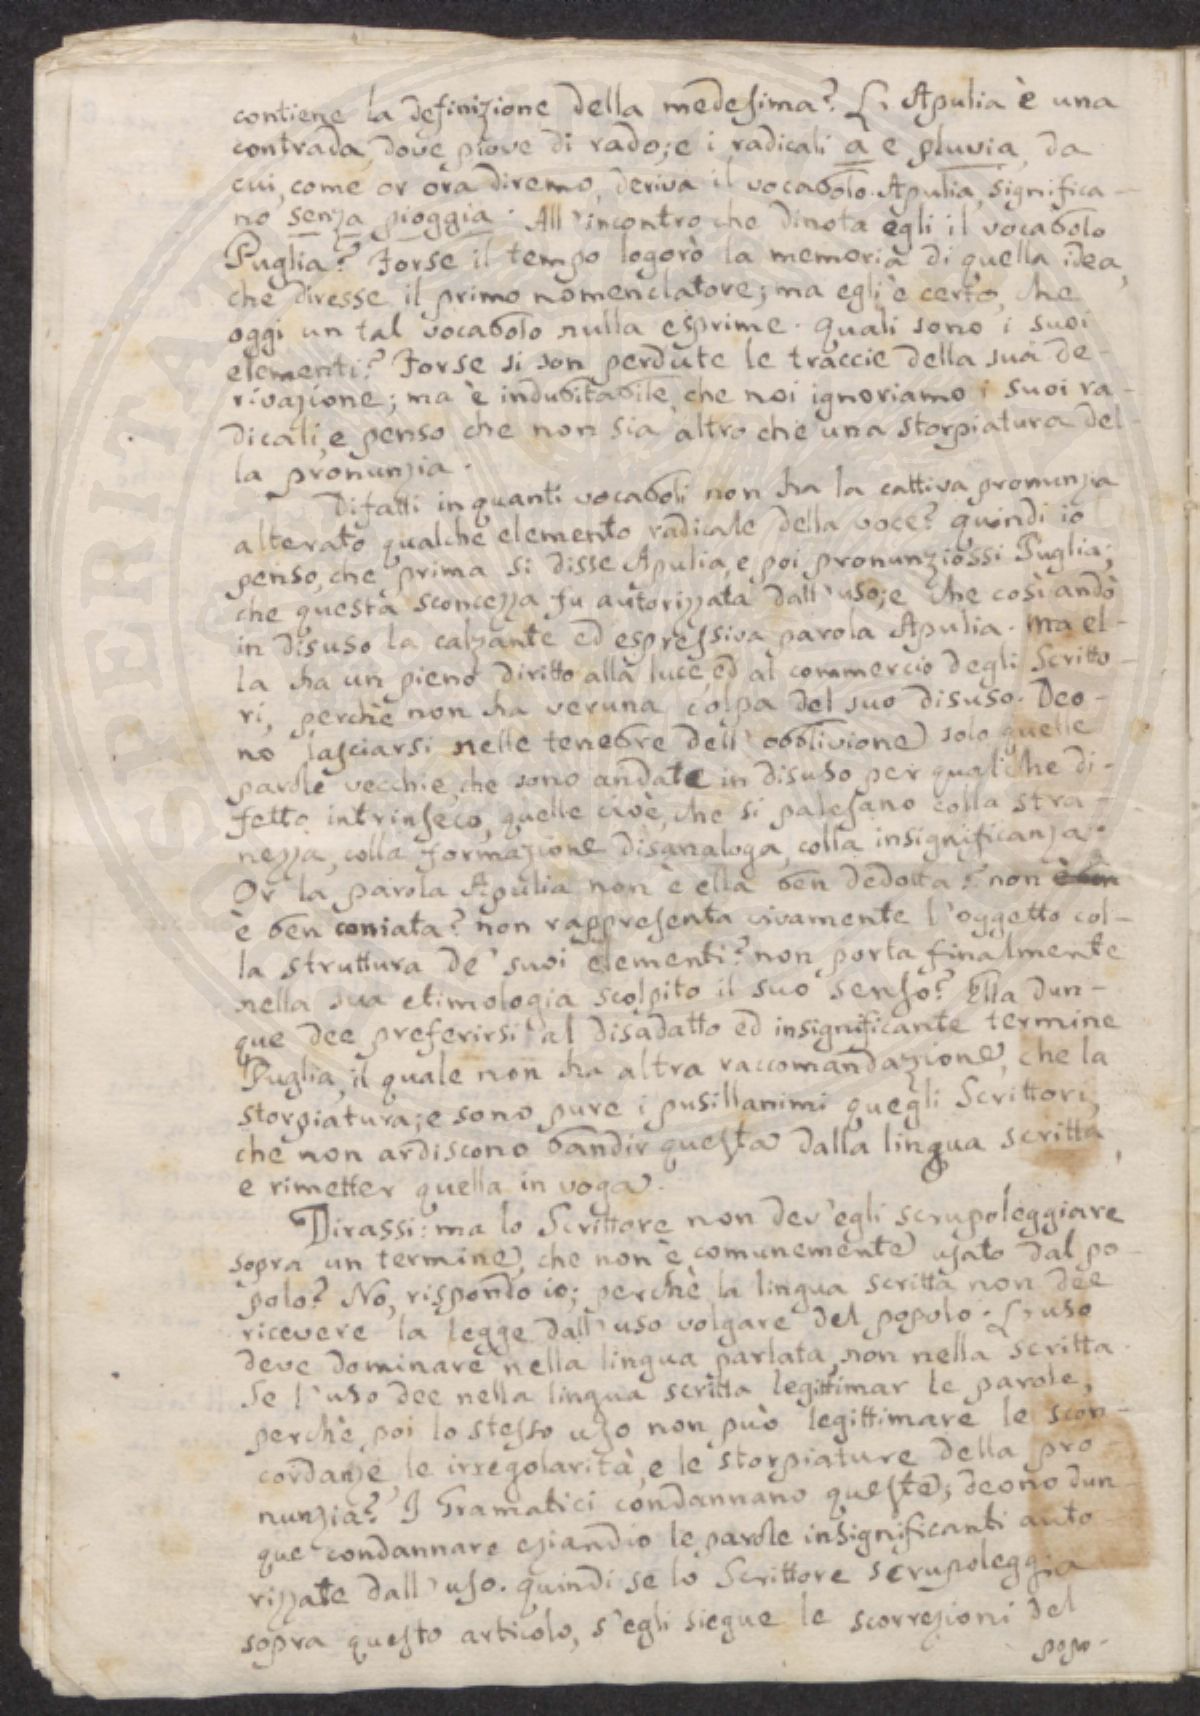 contiene la definizione della medesima? L'Apulia è una
contrada, dove piove di rado; e i radicali à e pluvia, da
cui, come or ora diremo, deriva il vocabolo Apulia, significa-
no senza pioggia. All'incontro che dinota egli il vocabolo
Puglia? Forse il tempo logorò la memoria di quella idea,
che diresse il primo nomenclatore; ma egli è certo, che
oggi un tal vocabolo nulla esprime. quali sono i suoi
elementi? Forse si son perdute le traccie della sua de-
rivazione; ma è indubitabile, che noi ignoriamo i suoi ra-
dicali, e penso che non sia altro che una storpiatura del-
la pronunzia.
Difatti in quanti vocaboli non ha la cattiva pronunzia
alterato qualche elemento radicale della voce? quindi io
penso, che prima si disse Apulia, e poi pronunziossi Puglia;
che questa sconcezza fu autorizzata dall'uso; e che così andò
in disuso la calzante ed espressiva parola Apulia. Ma el-
la ha un pieno diritto alla luce, ed al commercio degli Scritto-
ri, perchè non ha veruna colpa del suo disuso. Deo-
no lasciarsi nelle tenebre dell'obblivione solo quelle
parole vecchie, che sono andate in disuso per qualche di-
fetto intrinseco, quelle cioè, che si palesano colla stra-
nezza, colla formazione disanaloga, colla insignificanza.
Or la parola Apulia non è ella ben dedotta? non è ben
è ben coniata? non rappresenta vivamente l'oggetto col-
la struttura de' suoi elementi? non porta finalmente
nella sua etimologia scolpito il suo senso? Ella dun-
que dee preferirsi al disadatto ed insignificante termine
Puglia, il quale non ha altra raccomandazione, che la
storpiatura; e sono pure i pusillanimi quegli Scrittori,
che non ardiscono bandir questa dalla lingua scritta,
e rimetter quella in voga.
Dirassi: ma lo Scrittore non dev'egli scrupoleggiare
sopra un termine, che non è comunemente usato dal po-
polo? No, rispondo io; perchè la lingua scritta non dee
ricevere la legge dall'uso volgare del popolo. L'uso
deve dominare nella lingua parlata, non nella scritta.
Se l'uso dee nella lingua scritta legittimar le parole,
perchè poi lo stesso uso non può legittimare le scon-
cordanze, le irregolarità, e le storpiature della pro-
nunzia? I Gramatici condannano queste; deono dun-
que condannare eziandio le parole insignificanti auto-
rizzate dall'uso. quindi se lo Scrittore scrupoleggia
sopra questo articolo, s'egli siegue le scorrezioni del
popo-